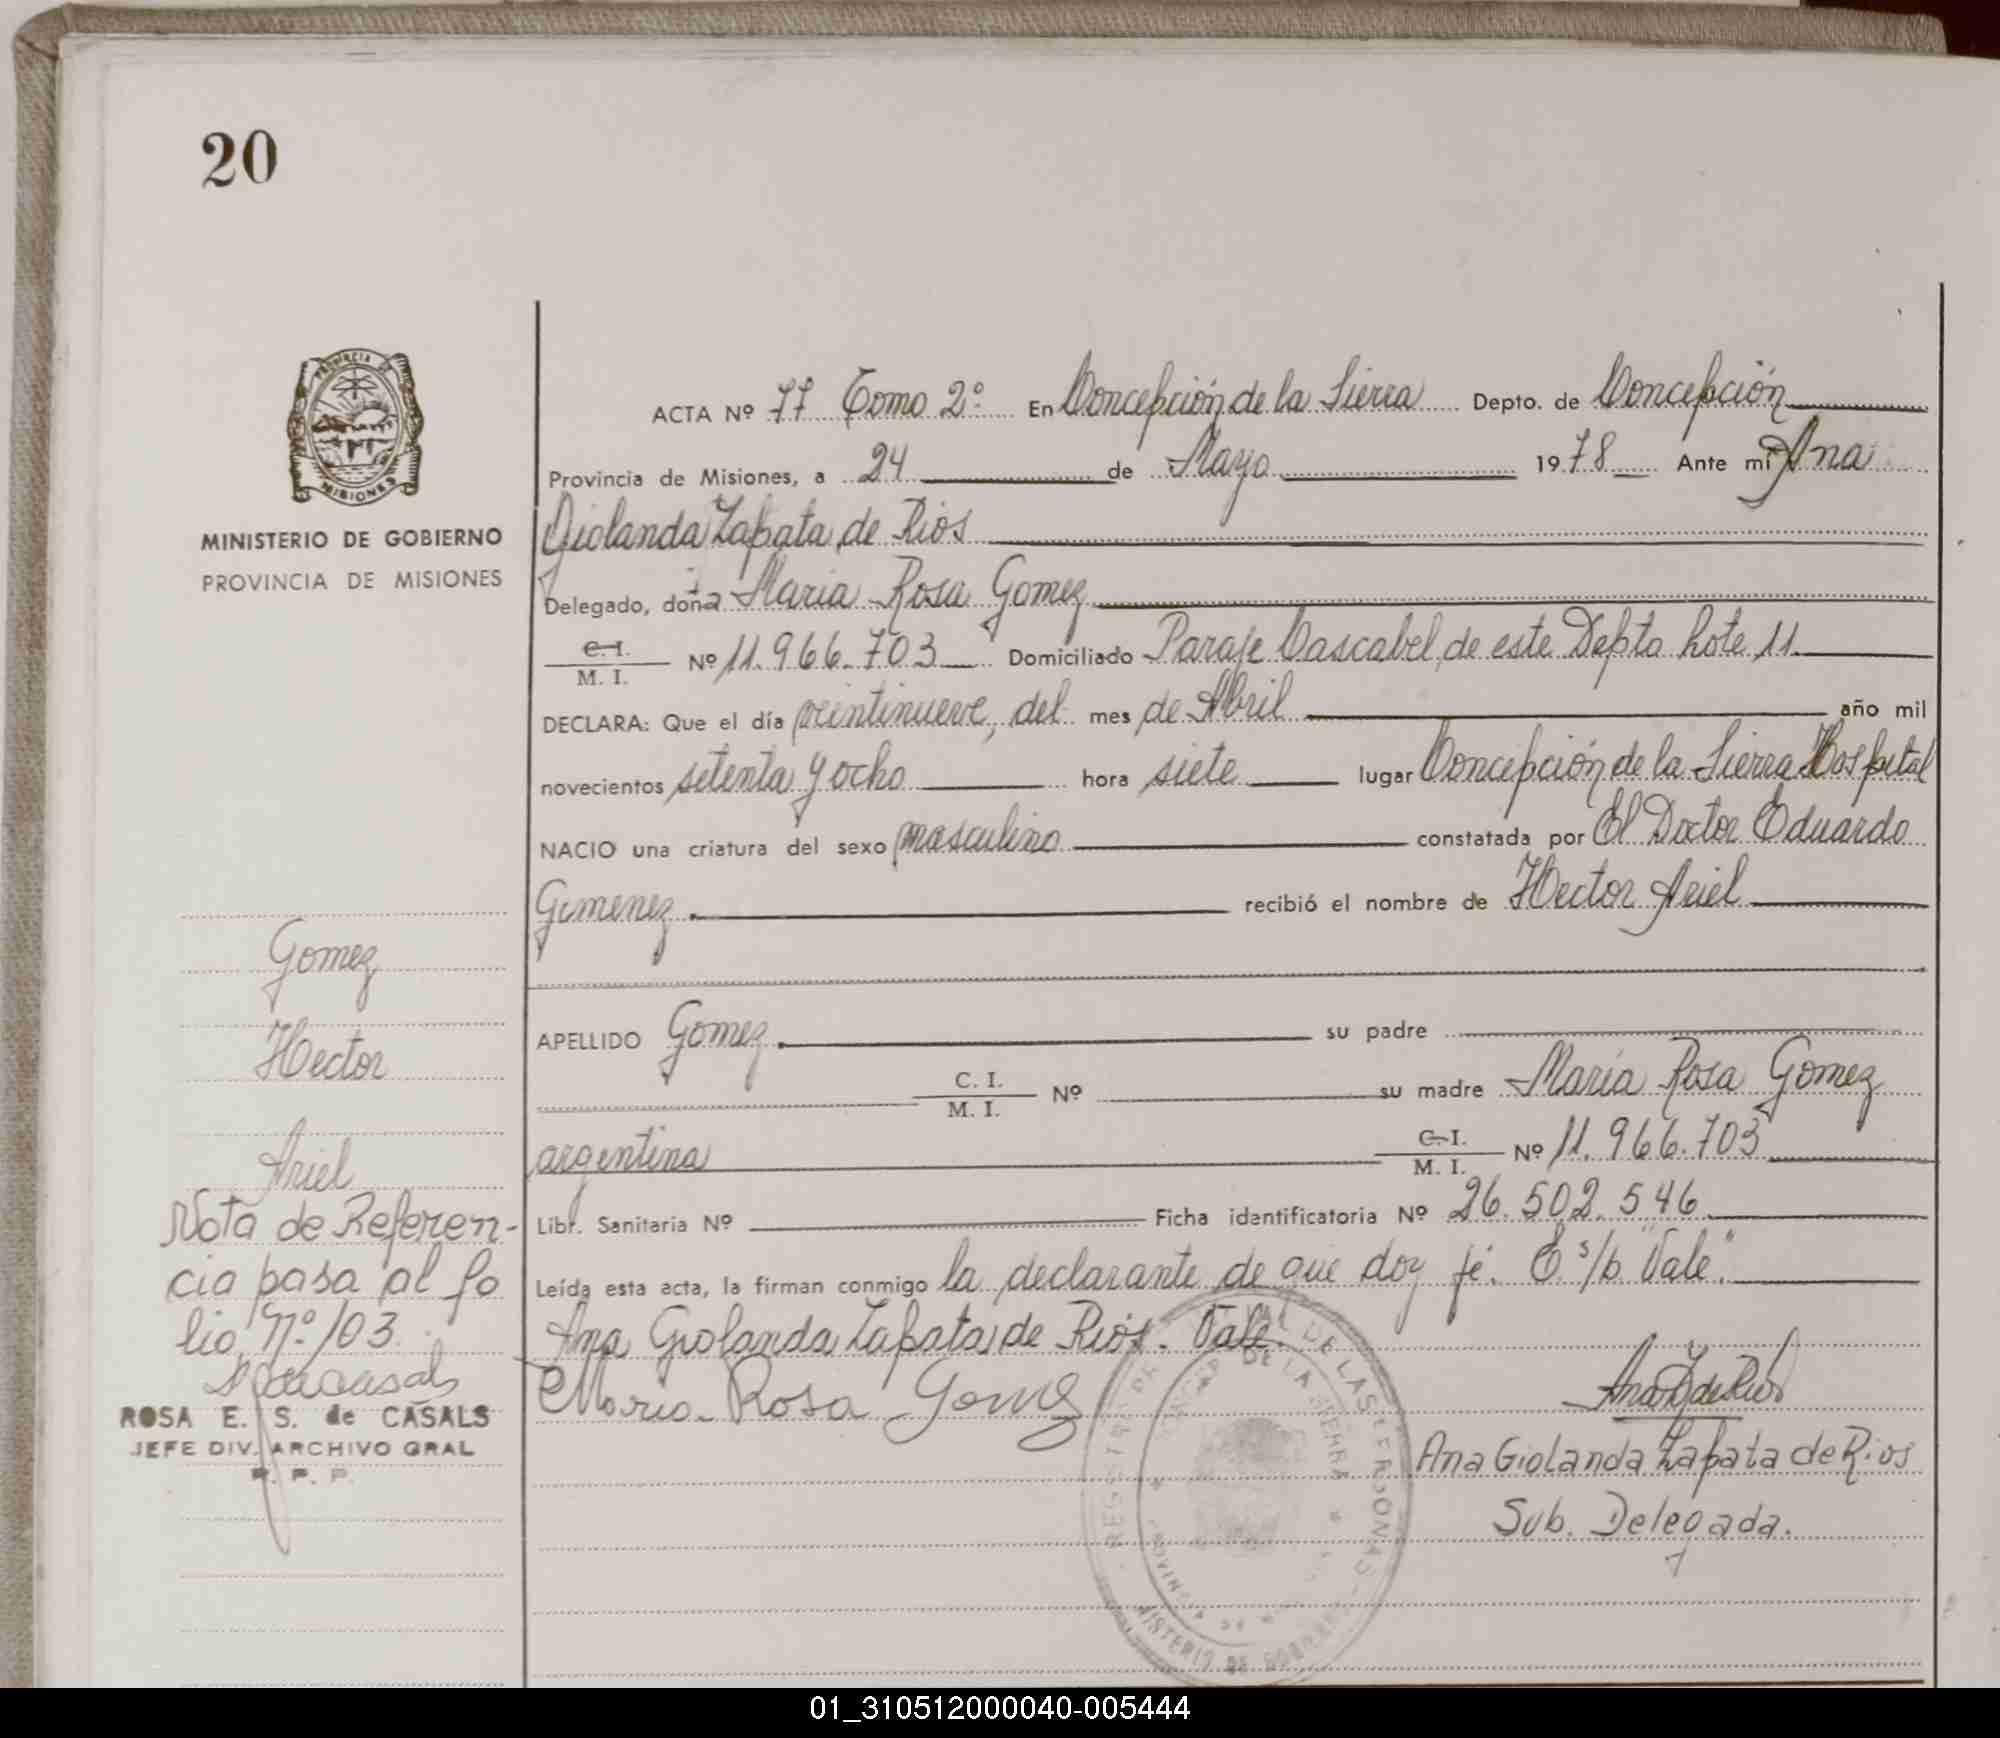 20
PROVINCIA DE
MISIONES
MINISTERIO DE GOBIERNO
PROVINCIA DE MISIONES
ACTA Nº 77 Tomo 2º En Concepción de la Sierra Depto. de Concepción
Provincia de Misiones, a 24 de Mayo 1978 Ante mí Ana
Giolanda Zapata de Rios
Delegado, doña Maria Rosa Gomez
C. I.
M. I. Nº 11.966.703 Domiciliado Paraje Cascabel, de este Depto Lote 11
DECLARA: Que el día veintinueve, del mes de Abril año mil
novecientos setenta y ocho hora siete lugar Concepción de la Sierra Hospital
NACIO una criatura del sexo masculino constatada por El Doctor Eduardo
Gimenez. recibió el nombre de Hector Ariel
APELLIDO Gomez. su padre
C. I.
M. I. Nº su madre Maria Rosa Gomez
argentina C. I.
M. I. Nº 11.966.703
Libr. Sanitaria Nº Ficha identificatoria Nº 26.502.546
Leída esta acta, la firman conmigo la declarante de que doy fé. E s/b "Vale".
Ana Giolanda Zapata de Rios. Vale.
Maria Rosa Gomez
Ana Giolanda Zapata de Rios
Sub. Delegada.
Gomez
Hector
Ariel
Nota de Referen-
cia pasa al fo
lio Nº 103.
ROSA E. S. de CASALS
JEFE DIV. ARCHIVO GRAL
R. P. P.
DE LAS PERSONAS
DE LA SIERRA
MINISTERIO DE GOBIERNO
01_310512000040-005444